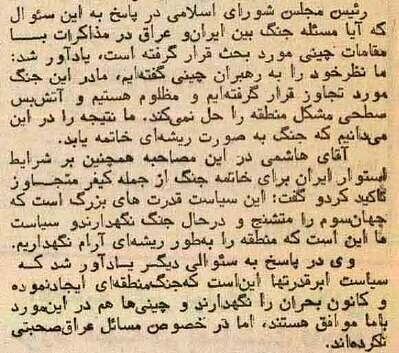 رئیس مجلس شورای اسلامی در پاسخ به این سئوال
که آیا مسئله جنگ بین ایران و عراق در مذاکرات بـــا
مقامات چینی مورد بحث قرار گرفته است، یادآور شد:
ما نظرخود را به رهبران چینی گفته‌ایم، مادر این جنگ
مورد تجاوز قرار گرفته‌ایم و مظلوم هستیم و آتش‌بس
سطحی مشکل منطقه را حل نمی‌کند. ما نتیجه را در این
می‌دانیم که جنگ به صورت ریشه‌ای خاتمه یابد.
آقای هاشمی در این مصاحبه همچنین بر شرایط
استوار ایران برای خاتمه جنگ از جمله کیفر متجـــاوز
تاکید کردو گفت: این سیاست قدرت های بزرگ است که
جهان‌سوم را متشنج و درحال جنگ نگهدارندو سیاست
ما این است که منطقه را به‌طور ریشه‌ای آرام نگهداریم.
وی در پاسخ به سئوالی دیگـر یــادآور شد کــه
سیاست ابرقدرتها این‌است که‌جنگ‌منطقه‌ای ایجادنموده
و کانون بحران را نگهدارند و چینی‌ها هم در این‌مورد
باما موافق هستند، اما در خصوص مسائل عراق‌صحبتی
نکرده‌اند.